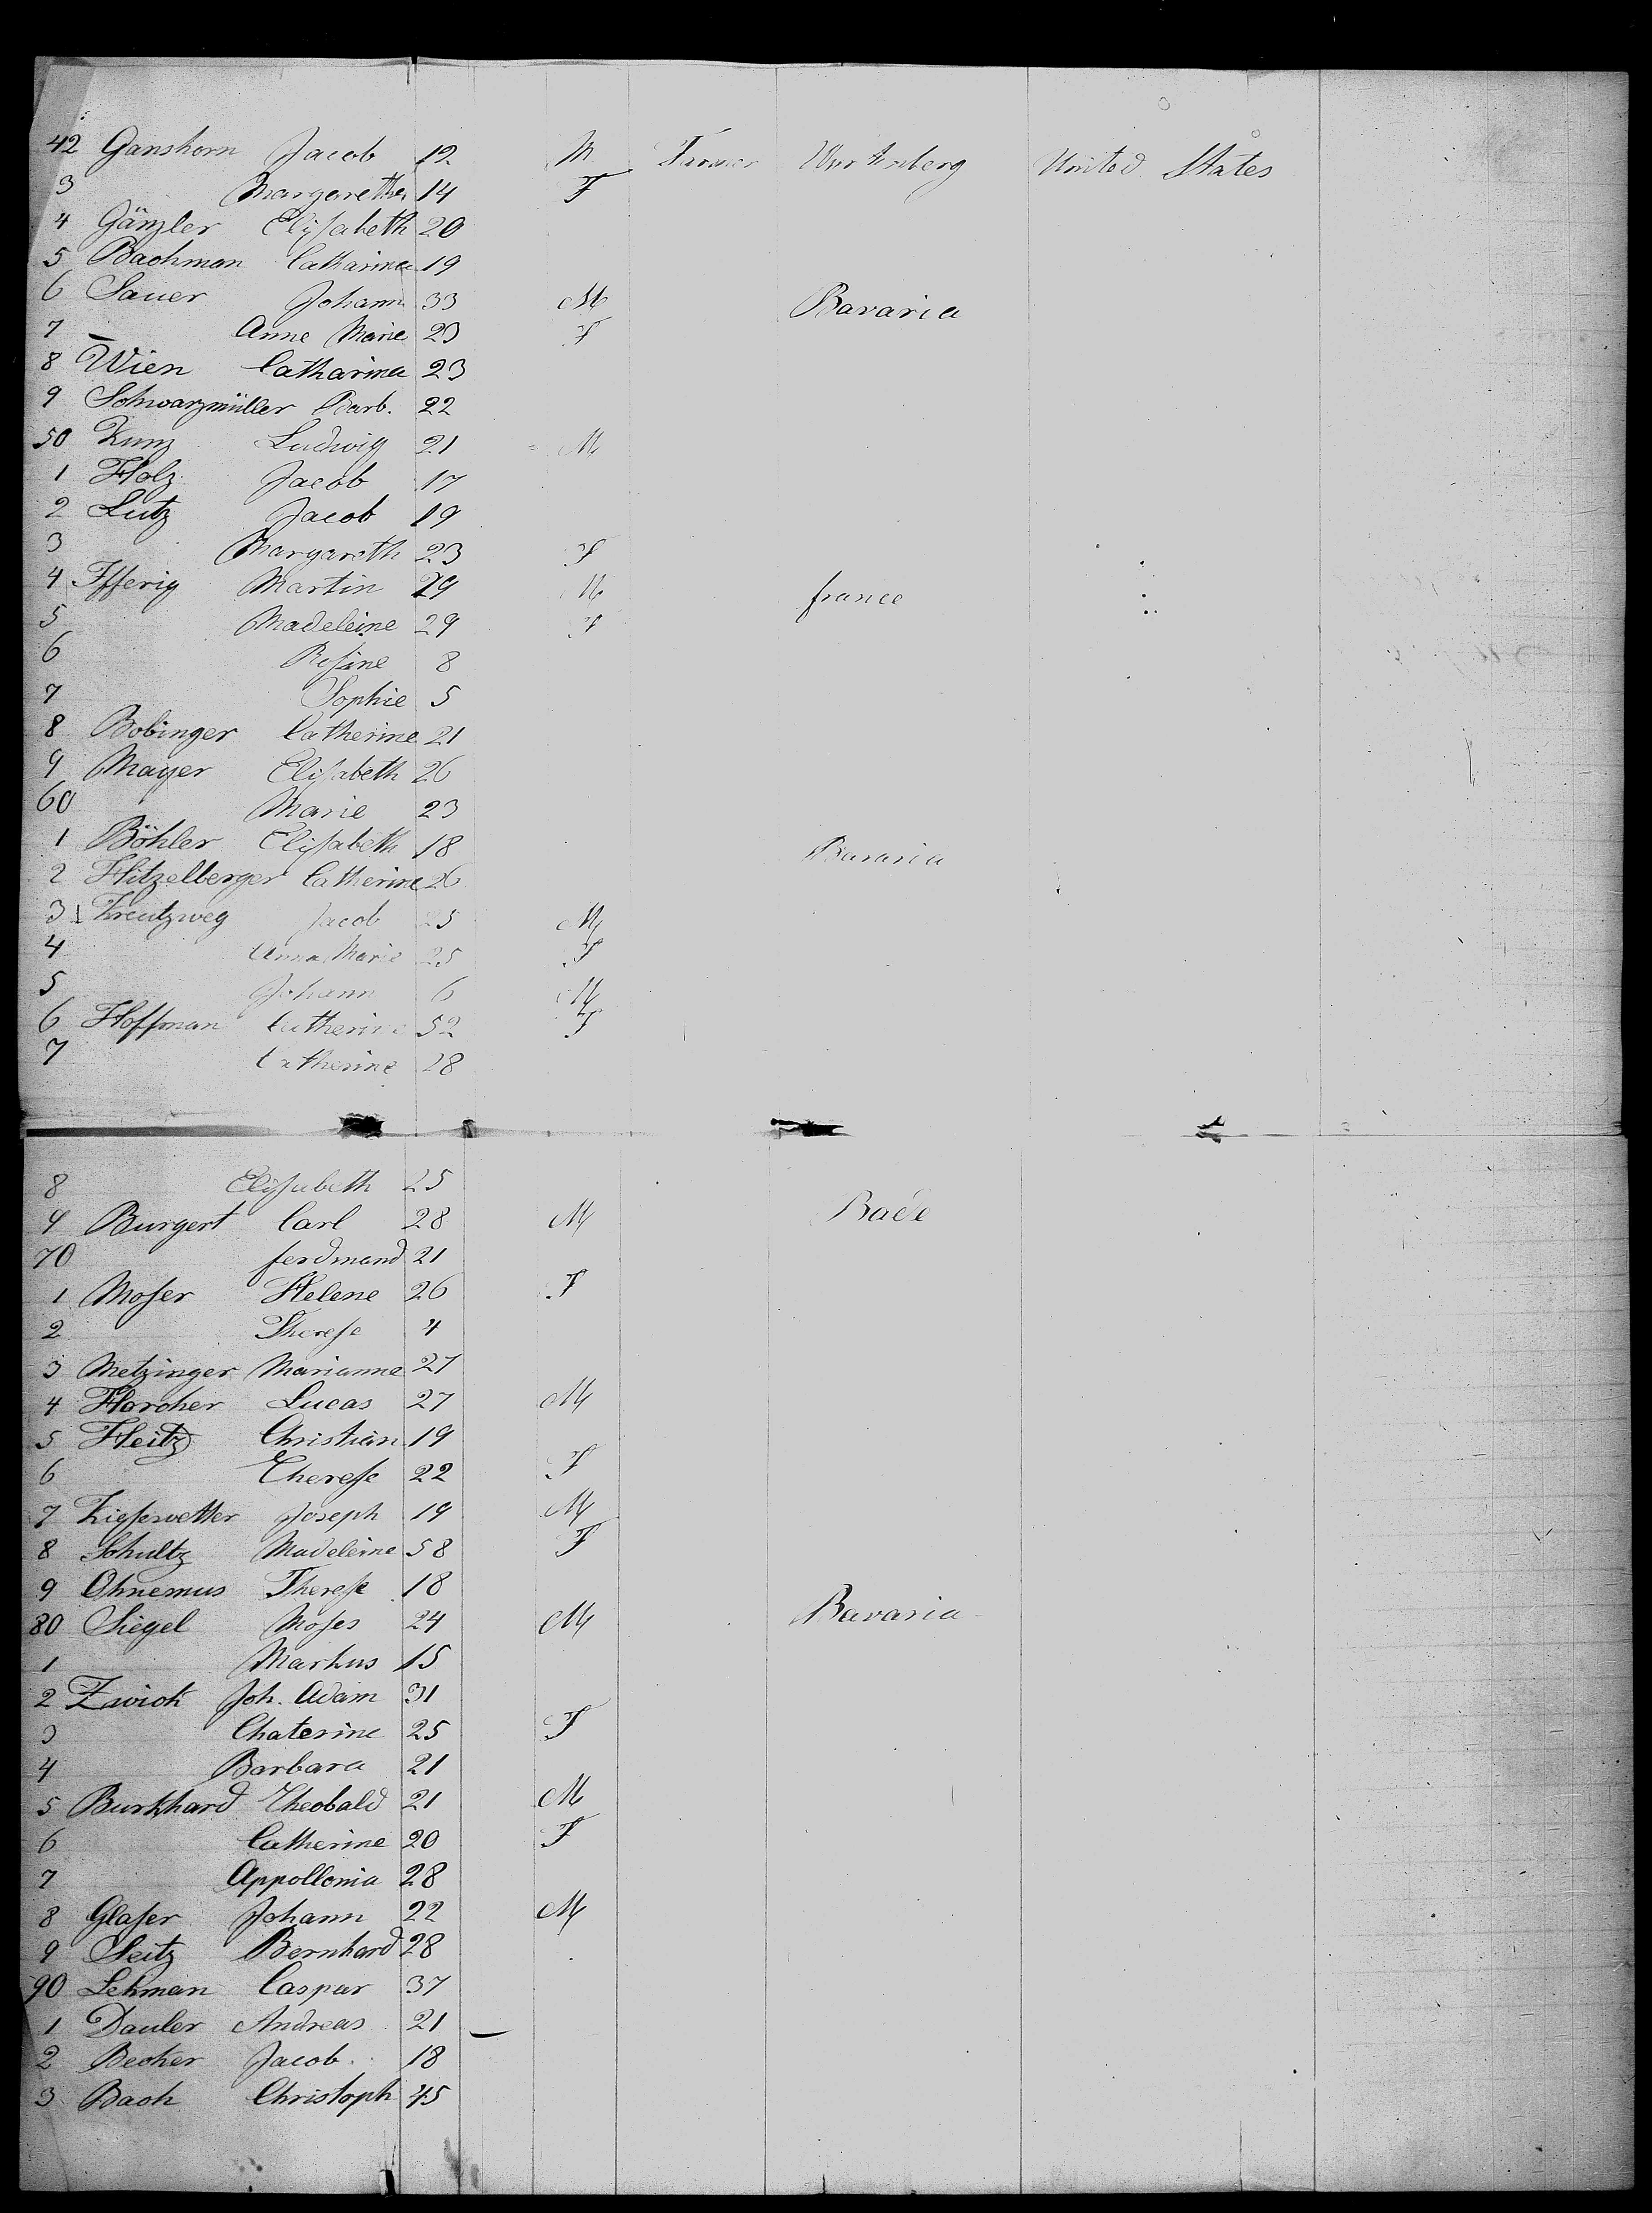 42 Ganshorn Jacob 12 M Farmer Wurtemberg United States
3 Margaretha 14 F
4 Gänzler Elisabeth 20
5 Bachman Catharina 19
6 Sauer Johann 33 M Bavaria
7 — Anne Marie 23 F
8 Wien Catharina 23
9 Schwarzmüller Barb. 22
50 Kunz Ludwig 21 M
1 Holz Jacob 17
2 Lutz Jacob 19
3 Margareth 23 F
4 Martin 29 M france
5 Madeleine 29 F
6 Rosine 8
7 Sophie 5
8 Bobinger Catherine 21
9 Mayer Elisabeth 26
60 Marie 23
1 Böhler Elisabeth 18 Bavaria
2 Hitzelberger Catherine 26
3 Kreutzweg Jacob 25 M
4 Anna Marie 25 F
5 Johann 6 M
6 Hoffman Catherine 52 F
7 Catherine 28
8 Elisabeth 25
9 Burgert Carl 28 M Bade
70 ferdinand 21
1 Moser Helene 26 F
2 Therese 4
3 Metzinger Marianne 27
4 Horcher Lucas 27 M
5 Heitz Christian 19
6 Therese 22 F
7 Kieserwetter Joseph 19 M
8 Schultz Madeleine 58 F
9 Ohnemus Therese 18
80 Siegel Moses 24 M Bavaria
1 Markus 15
2 Zwick Joh. Adam 31
3 Chaterine 25 F
4 Barbara 21
5 Burkhard Theobald 21 M
6 Catherine 20 F
7 Appollonia 28
8 Glaser Johann 22 M
9 Seitz Bernhard 28
90 Lehman Caspar 37
1 Dauler Andreas 21
2 Becker Jacob 18
3 Bach Christoph 45